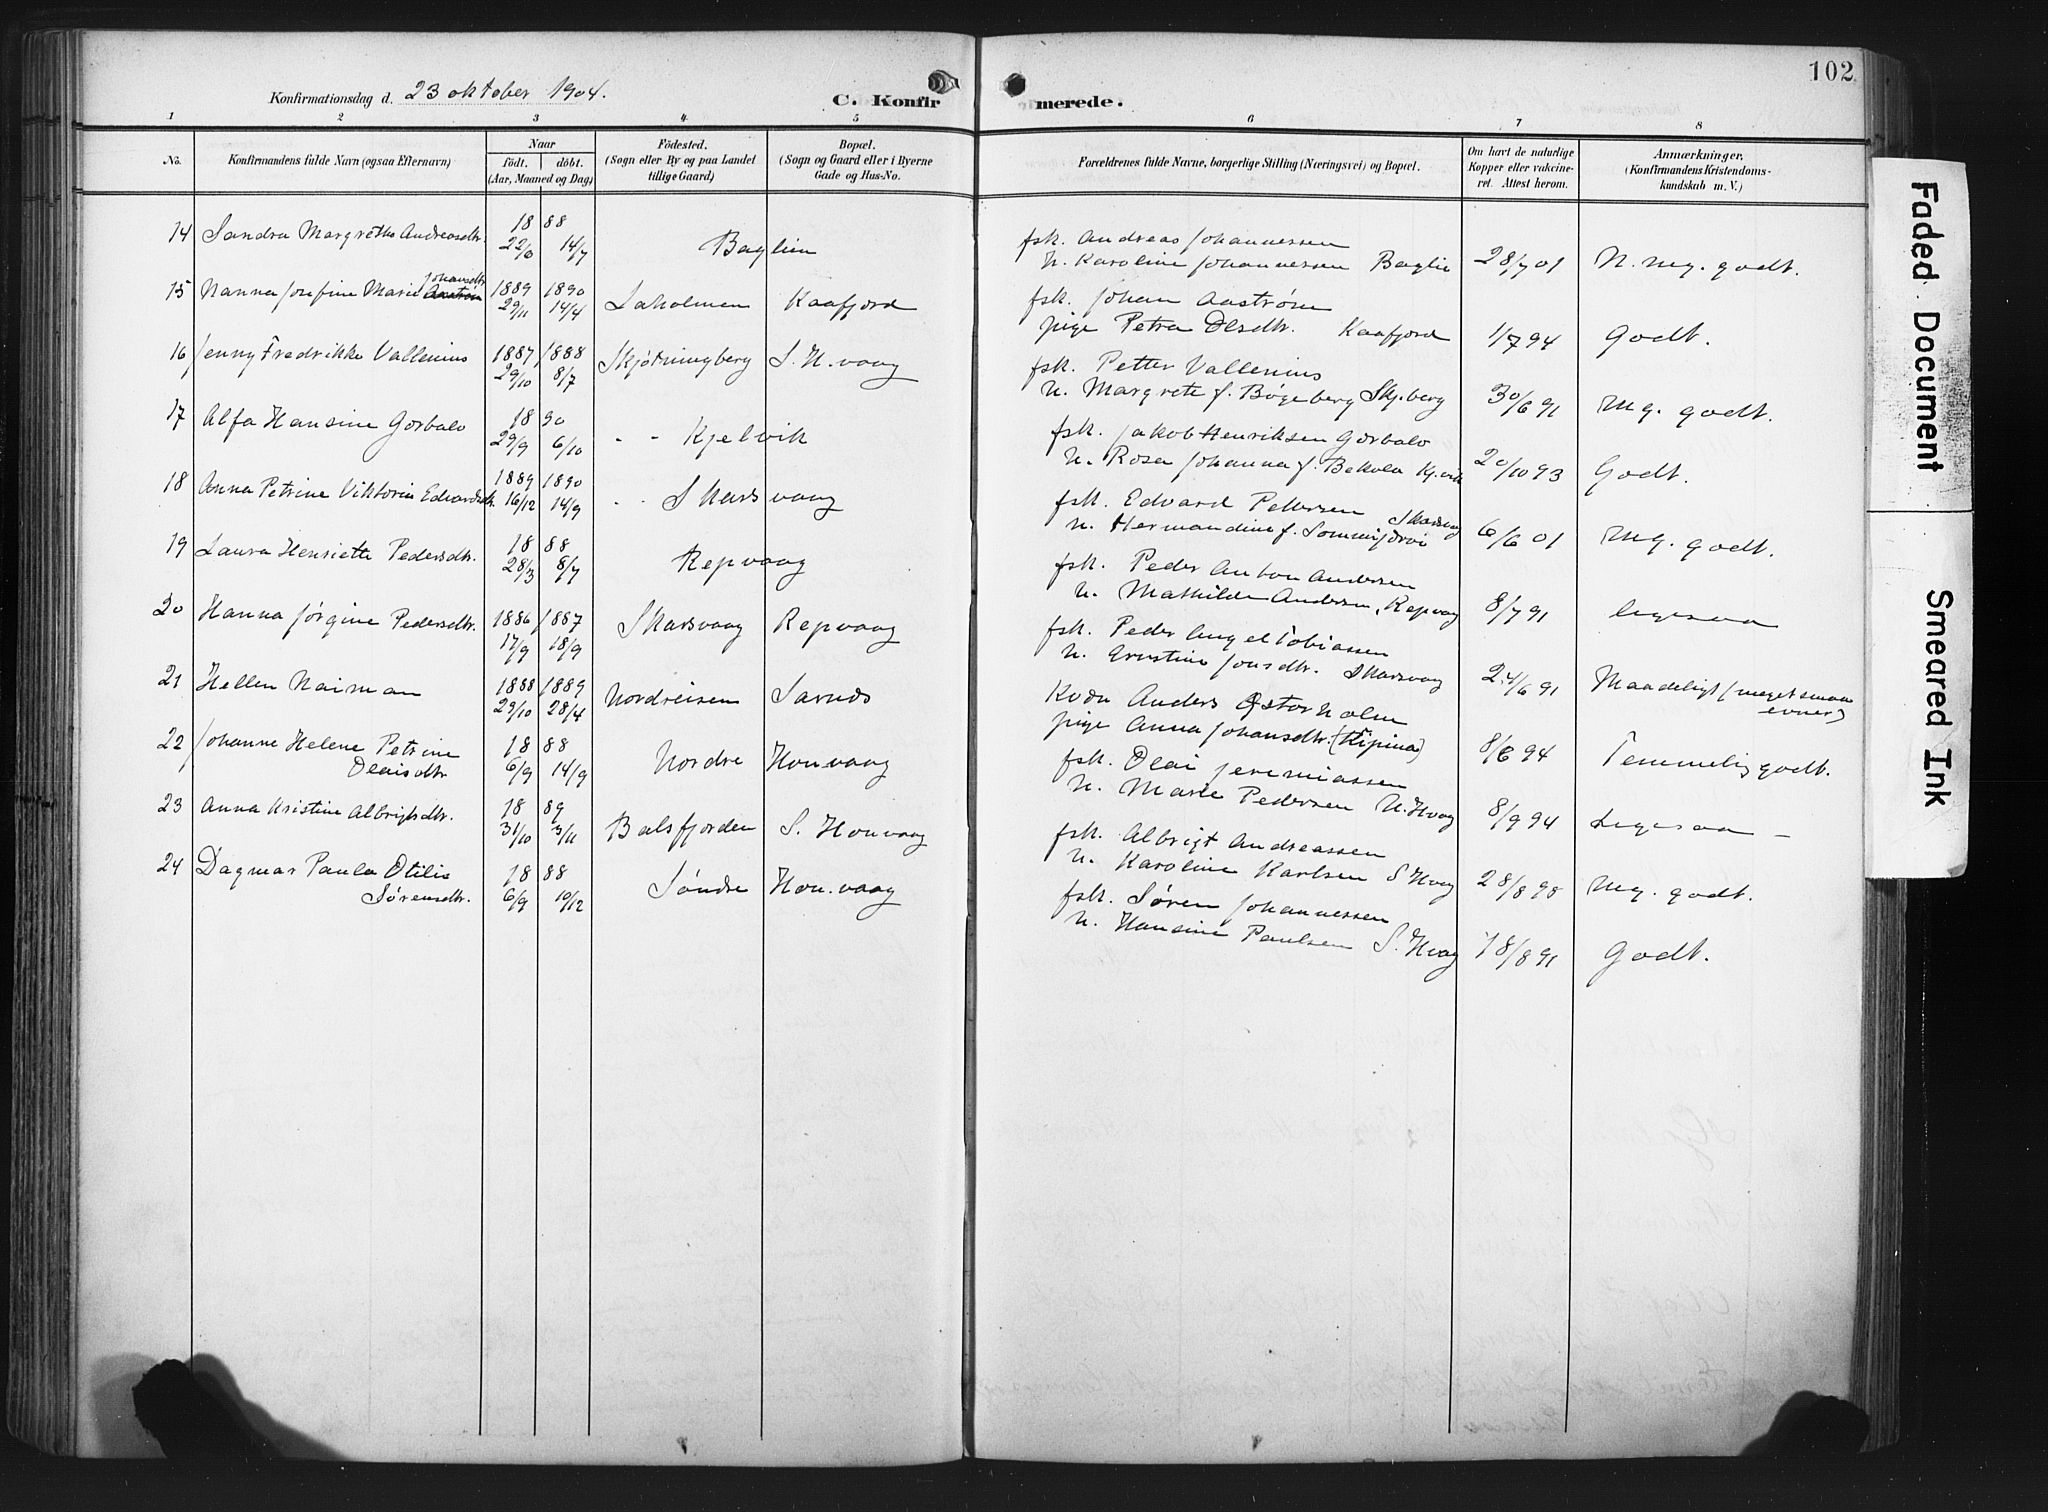 102
Konfirmationsdag d. 23 oktober 1904.
C. Konfir merede.
1 2 3 4 5 6 7 8
No.
Konfirmandens fulde Navn (ogsaa Efternavn)
Naar
födt. döbt.
(Aar, Maaned og Dag)
Födested.
(Sogn eller By og paa Landet
tillige Gaard)
Bopæl.
(Sogn og Gaard eller i Byerne
Gade og Hus-No.
Forældrenes fulde Navne, borgerlige Stilling (Næringsvei) og Bopæl.
Om havt de naturlige
Kopper eller vakcine-
ret. Attest herom.
Anmærkninger.
(Konfirmandens Kristendoms-
kundskab m. V.)
14 Sandra Margrethe Andreasdtr. 18 88
22/6 14/7 Baglien
fsk. Andreas Johannessen
h. Karoline Johannessen Baglie 28/7 01 N. meg. godt.
15 Nanna Josefine Marie Johansdtr. 1889 1890
29/11 14/4 Laholmen Kaafjord
fsk. Johan Aastrøm
pige Petra Olsdtr. Kaafjord 1/7 94 Godt.
16 Jenny Fredrikke Vallenius 1887 1888
29/10 8/7 Skjøtningberg S. H.vaag
fsk. Petter Vallenius
h. Margrete f. Bøgeberg Skj.berg 30/6 91 Mg. godt.
17 Alfa Hansine Gorbalo 18 90
29/9 6/10 - - Kjelvik
fsk. Jakob Henriksen Gorbalo
h. Rosa Johanna f. Bekola Kj.vik 20/10 93 Godt.
18 Anna Petrine Viktorie Edvardsdtr. 1889 1890
16/12 14/9 - - Skarsvaag
fsk. Edvard Pettersen Skarsvaag
h. Hermandine f. 6/6 01 Mg. godt.
19 Laura Henriette Pedersdtr. 18 88
28/3 8/7 Repvaag
fsk. Peder Anton Andersen
h. Mathilde Andersen, Repvaag 8/7 91 ligesaa
20 Hanna Jørgine Pedersdtr. 1886 1887
17/9 18/9 Skarsvaag Repvaag
fsk. Peder Angel Tobiassen
h. Ernstine Jonsdtr. Skarsvaag 24/6 91 Maadeligt (meget smaa
evner)
21 Hellen Naiman 1888 1889
29/10 28/4 Nordreisen Sarnes
Kvæn Anders Østerholm
pige Anna Johansdtr. (Kipina) 8/6 94 Temmelig godt.
22 Johanne Helene Petrine
Olaisdtr 18 88
6/9 14/9 Nordre Honvaag
fsk. Olai Jeremiassen
h. Marie Pedersen N. Hvag 8/9 94 Ligesaa -
23 Anna Kristine Albrigtsdtr. 18 89
31/10 3/11 Balsfjorden S. Honvaag
fsk. Albrigt Andreassen
h. Karoline Karlsen S Hvag 28/8 98 Meg. godt.
24 Dagmar Paula Otilie
Sørensdtr. 18 88
6/9 10/12 Søndre Hon.vaag
fsk. Søren Johannessen
h. Hansine Paulsen S. Hvag 18/8 91 Godt.
Faded Document
Smeared Ink